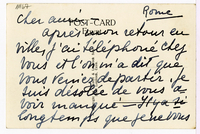 1957
Rome
Cher ami
POST CARD
Après mon retour en
villes j'ai téléphoné chez
vous et l'on m'a dit que
vous veniez de partir. Je
suis désolée de vous a-
voir manqué — Il y a si
longtemps que je ne vous